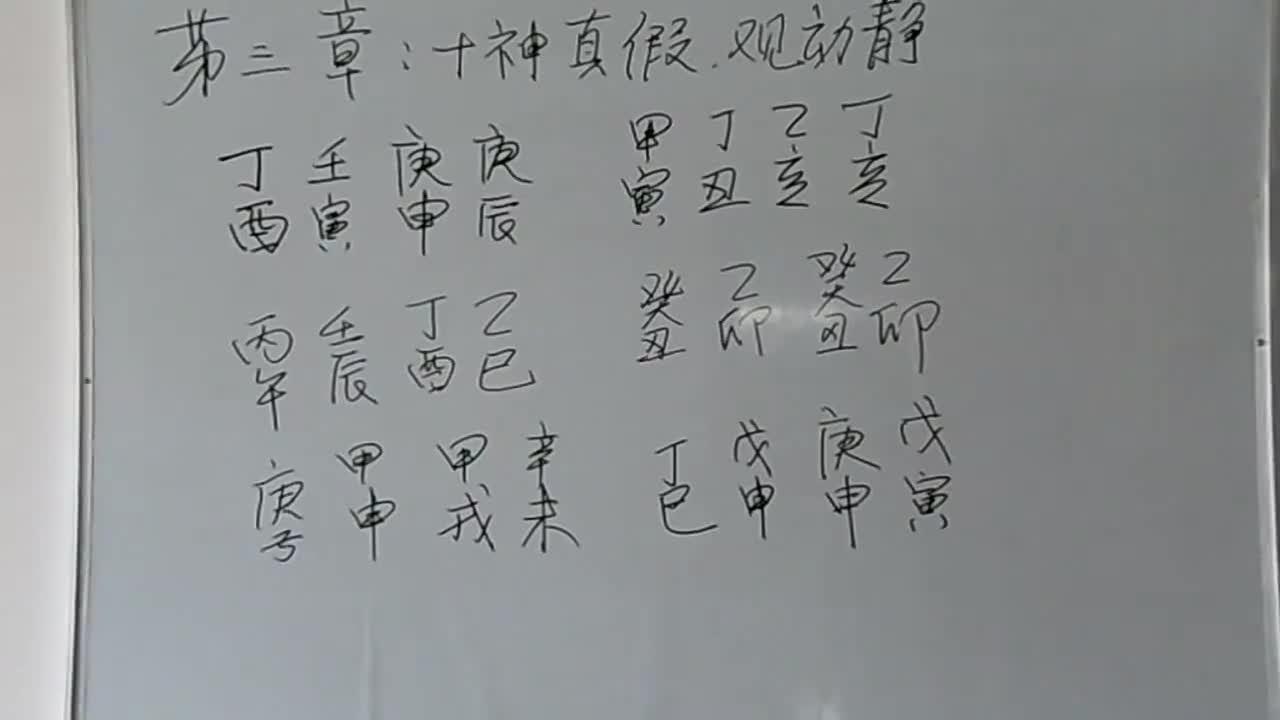 第三章:十神真假.观动静
丁壬庚庚 甲丁乙丁
酉寅申辰 寅丑亥亥
丙壬丁乙 癸乙癸乙
午辰酉巳 丑卯丑卯
庚甲甲辛 丁戊庚戊
子申戌未 巳申申寅